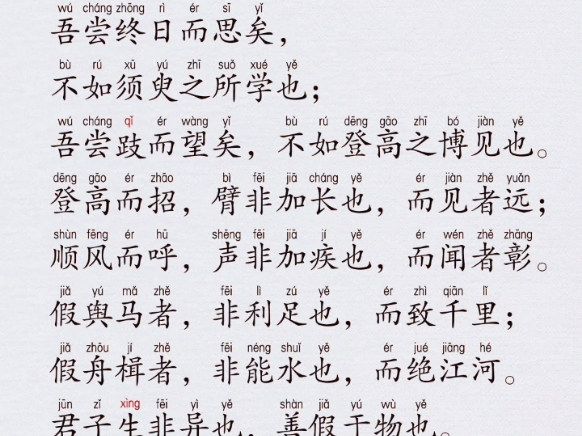 wú cháng zhōng rì ér sī yǐ
吾尝终日而思矣，
bù rú xū yú zhī suǒ xué yě
不如须臾之所学也；
wú cháng qǐ ér wàng yǐ bù rú dēng gāo zhī bó jiàn yě
吾尝跂而望矣，不如登高之博见也。
dēng gāo ér zhāo bì fēi jiā cháng yě ér jiàn zhě yuǎn
登高而招，臂非加长也，而见者远；
shùn fēng ér hū shēng fēi jiā jí yě ér wén zhě zhāng
顺风而呼，声非加疾也，而闻者彰。
jiǎ yú mǎ zhě fēi lì zú yě ér zhì qiān lǐ
假舆马者，非利足也，而致千里；
jiǎ zhōu jí zhě fēi néng shuǐ yě ér jué jiāng hé
假舟楫者，非能水也，而绝江河。
jūn zǐ xìng fēi yì yě shàn jiǎ yú wù yě
君子生非异也，善假于物也。